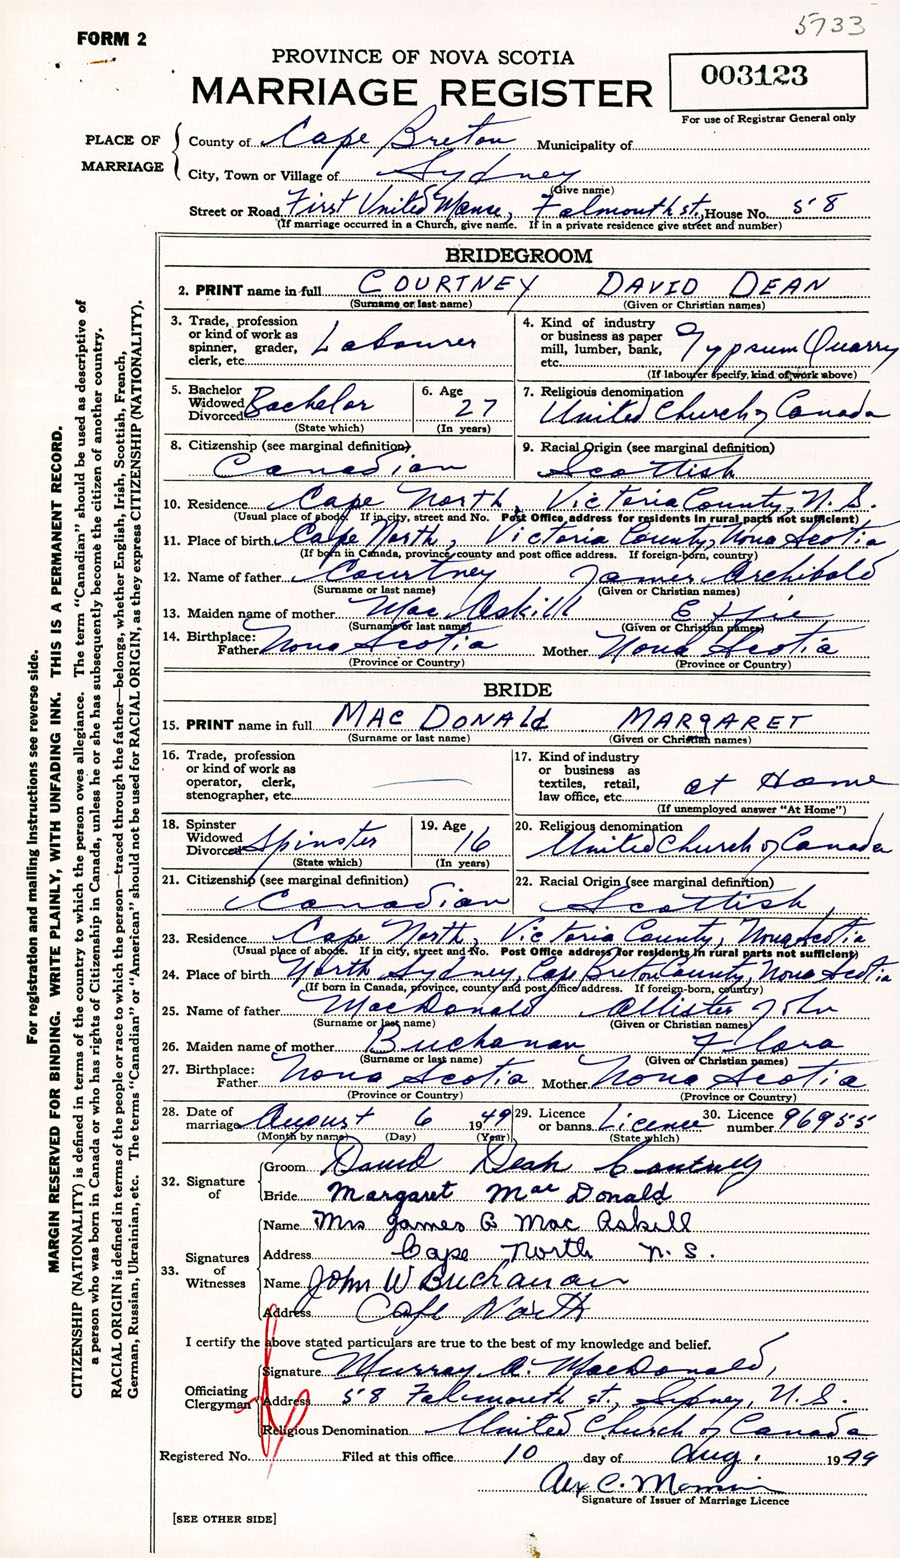 5733
FORM 2
PROVINCE OF NOVA SCOTIA
MARRIAGE REGISTER
003123
For use of Registrar General only
PLACE OF MARRIAGE
County of Cape Breton Municipality of
City, Town or Village of Sydney
(Give name)
Street or Road First United Manse, Falmouth st., House No. 58
(If marriage occurred in a Church, give name. If in a private residence give street and number)
BRIDEGROOM
2. PRINT name in full COURTNEY DAVID DEAN
(Surname or last name) (Given or Christian names)
3. Trade, profession or kind of work as spinner, grader, clerk, etc. Labourer
4. Kind of industry or business as paper mill, lumber, bank, etc. Gypsum Quarry
(If labourer specify, kind of work above)
5. Bachelor Widowed Divorced Bachelor
(State which)
6. Age 27
(In years)
7. Religious denomination
United Church of Canada
8. Citizenship (see marginal definition)
Canadian
9. Racial Origin (see marginal definition)
Scottish
10. Residence Cape North, Victoria County, N.S.
(Usual place of abode. If in city, street and No. Post Office address for residents in rural parts not sufficient)
11. Place of birth Cape North, Victoria County, Nova Scotia
(If born in Canada, province, county and post office address. If foreign-born, country)
12. Name of father Courtney James Archibald
(Surname or last name) (Given or Christian names)
13. Maiden name of mother MacAskill Effie
(Surname or last name) (Given or Christian names)
14. Birthplace:
Father Nova Scotia Mother Nova Scotia
(Province or Country) (Province or Country)
BRIDE
15. PRINT name in full MACDONALD MARGARET
(Surname or last name) (Given or Christian names)
16. Trade, profession or kind of work as operator, clerk, stenographer, etc.
17. Kind of industry or business as textiles, retail, law office, etc. at Home
(If unemployed answer "At Home")
18. Spinster Widowed Divorced Spinster
(State which)
19. Age 16
(In years)
20. Religious denomination
United Church of Canada
21. Citizenship (see marginal definition)
Canadian
22. Racial Origin (see marginal definition)
Scottish
23. Residence Cape North, Victoria County, Nova Scotia
(Usual place of abode. If in city, street and No. Post Office address for residents in rural parts not sufficient)
24. Place of birth North Sydney, Cape Breton County, Nova Scotia
(If born in Canada, province, county and post office address. If foreign-born, country)
25. Name of father MacDonald Allister John
(Surname or last name) (Given or Christian names)
26. Maiden name of mother Buchanan Flora
(Surname or last name) (Given or Christian names)
27. Birthplace:
Father Nova Scotia Mother Nova Scotia
(Province or Country) (Province or Country)
28. Date of marriage August 6 1949
(Month by name) (Day) (Year)
29. Licence or banns Licence
(State which)
30. Licence number 96955
32. Signature of
Groom David Dean Courtney
Bride Margaret MacDonald
33. Signatures of Witnesses
Name Mrs James B MacAskill
Address Cape North N.S.
Name John W Buchanan
Address Cape North
I certify the above stated particulars are true to the best of my knowledge and belief.
Officiating Clergyman
Signature Murray A. MacDonald,
Address 58 Falmouth st., Sydney, N.S.
Religious Denomination United Church of Canada
Registered No. Filed at this office 10 day of Aug. 1949
Alex C.
Signature of Issuer of Marriage Licence
[SEE OTHER SIDE]
For registration and mailing instructions see reverse side.
MARGIN RESERVED FOR BINDING. WRITE PLAINLY, WITH UNFADING INK. THIS IS A PERMANENT RECORD.
CITIZENSHIP (NATIONALITY) is defined in terms of the country to which the person owes allegiance. The term "Canadian" should be used as descriptive of
a person who was born in Canada or who has rights of Citizenship in Canada, unless he or she has subsequently become the citizen of another country.
RACIAL ORIGIN is defined in terms of the people or race to which the person—traced through the father—belongs, whether English, Irish, Scottish, French,
German, Russian, Ukrainian, etc. The terms "Canadian" or "American" should not be used for RACIAL ORIGIN, as they express CITIZENSHIP (NATIONALITY).